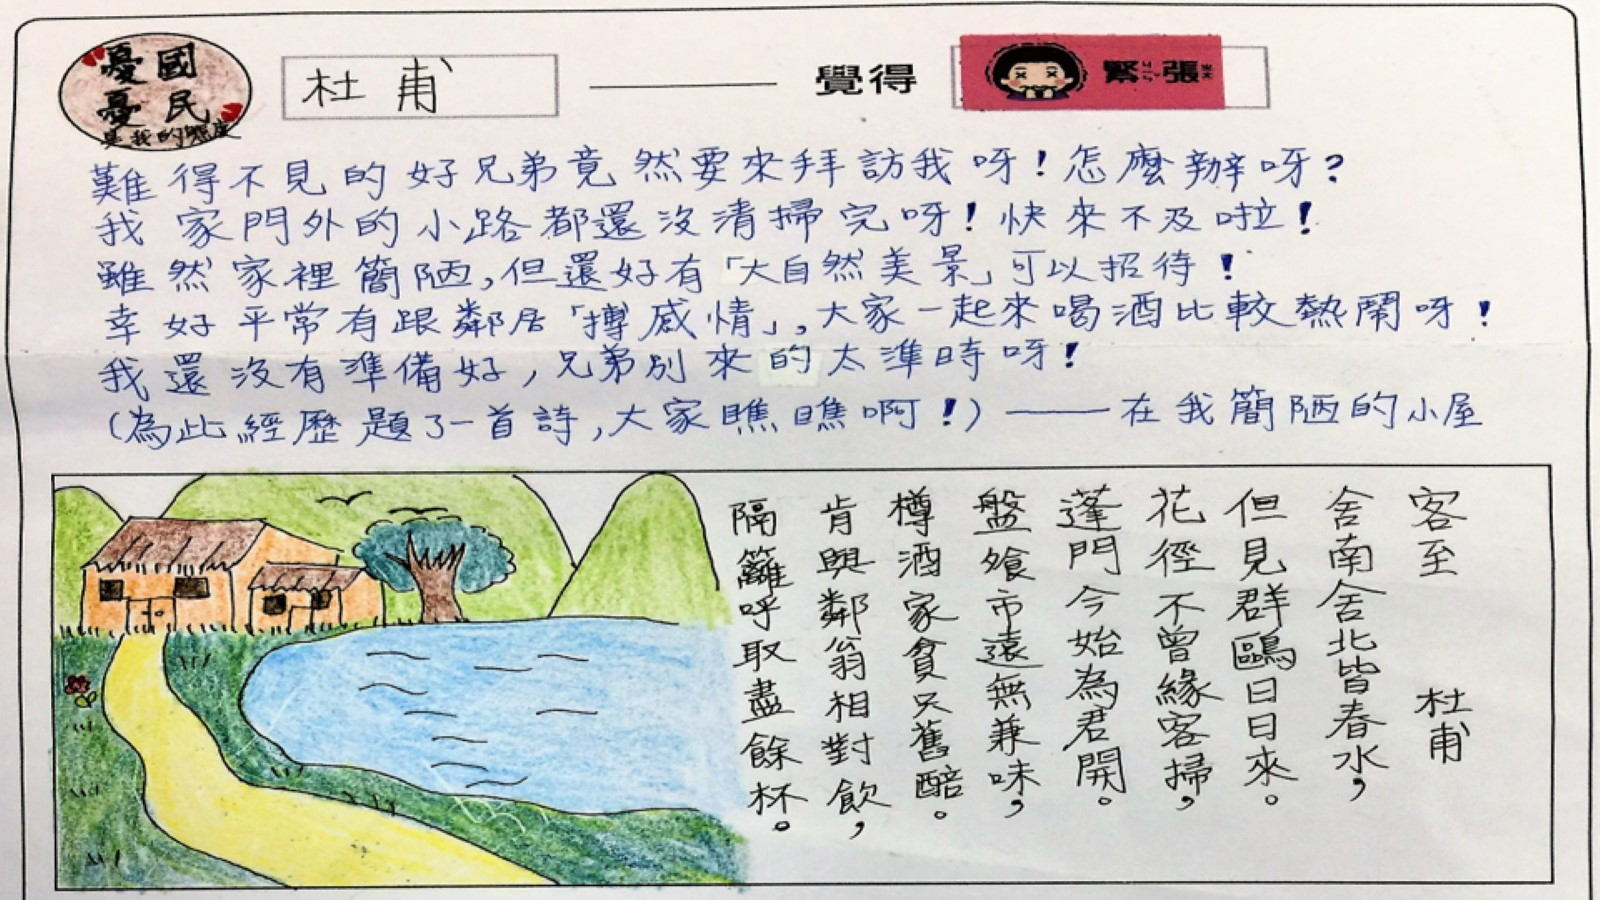 憂國
憂民
是我的態度
杜甫
覺得
緊張
難得不見的好兄弟竟然要來拜訪我呀!怎麼辦呀?
我家門外的小路都還沒清掃完呀!快來不及啦!
雖然家裡簡陋,但還好有「大自然美景」可以招待!
幸好平常有跟鄰居「摶感情」,大家一起來喝酒比較熱鬧呀!
我還沒有準備好,兄弟別來的太準時呀!
(為此經歷題了一首詩,大家瞧瞧啊!)——在我簡陋的小屋
客至 杜甫
舍南舍北皆春水,
但見群鷗日日來。
花徑不曾緣客掃,
蓬門今始為君開。
盤飧市遠無兼味,
樽酒家貧只舊醅。
肯與鄰翁相對飲,
隔籬呼取盡餘杯。